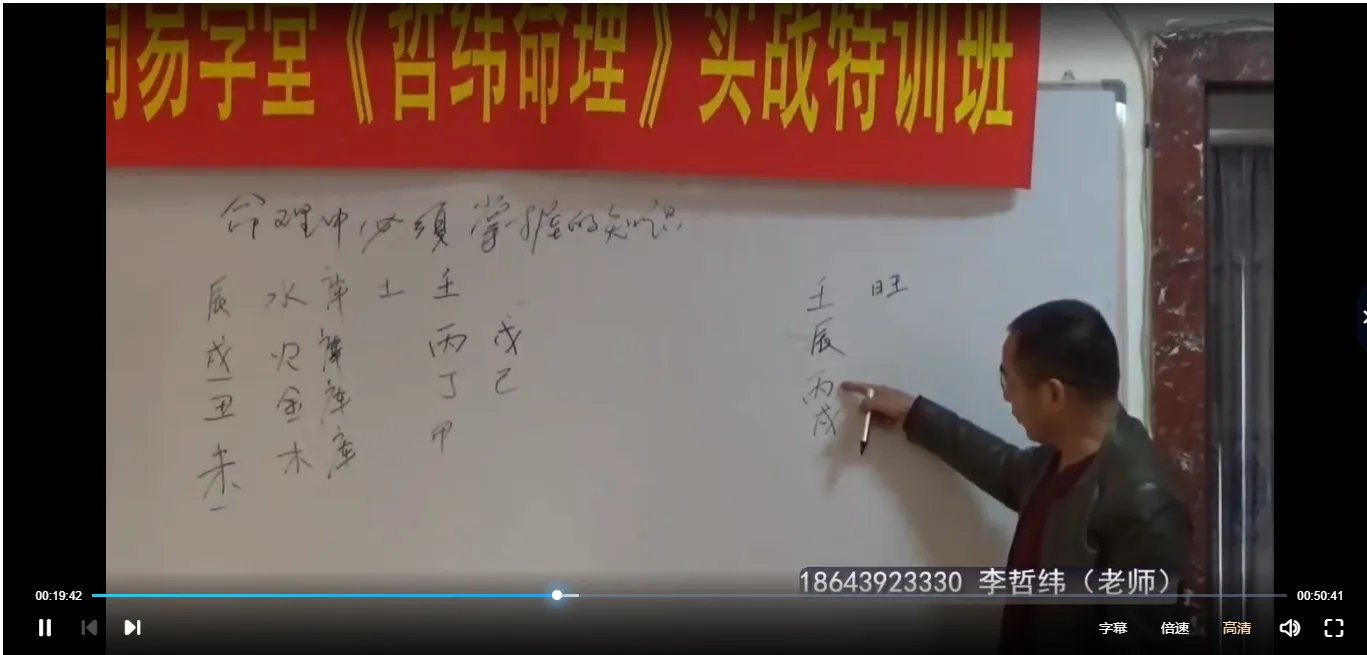 周易学堂《哲纬命理》实战特训班
命理中必须掌握的知识
辰 水库 土 壬
戌 火库 丙 戊
丑 金库 丁 己
未 木库 甲
壬 旺
辰
丙
戌
18643923330 李哲纬（老师）
00:19:42
00:50:41
字幕 倍速 高清